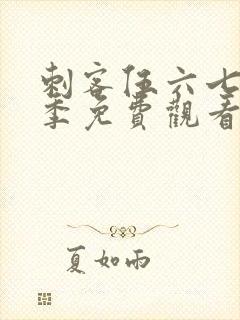 刺客伍六七
季免費觀看
夏如雨